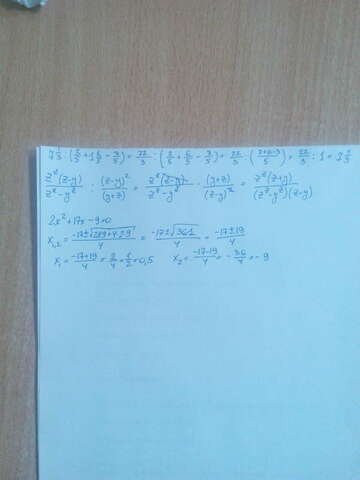 7 1/3 : (2/5 + 1 1/5 - 3/5) = 22/3 : (2/5 + 6/5 - 3/5) = 22/3 : (2+6-3/5) = 22/3 : 1 = 7 1/3
z²(z-y)/z²-y² : (z-y)²/(y+z) = z²(z-y)/z²-y² · (y+z)/(z-y)² = z²(z+y)/(z²-y²)(z-y)
2x²+17x-9=0
x₁,₂ = -17±√289+4·2·9/4 = -17±√361/4 = -17±19/4
x₁ = -17+19/4 = 2/4 = 1/2 = 0,5 x₂ = -17-19/4 = -36/4 = -9